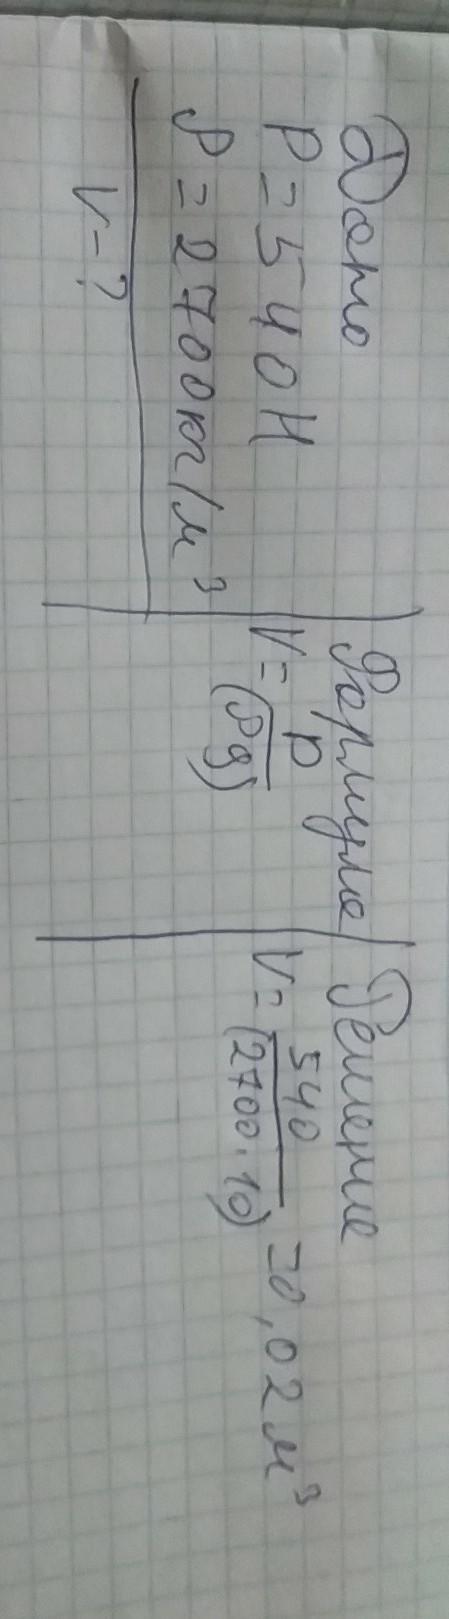 Дано
P = 540 Н
ρ = 2700 кг/м³
V - ?
Формула
V = p/(ρg)
Решение
V = 540/(2700·10) = 0,02 м³